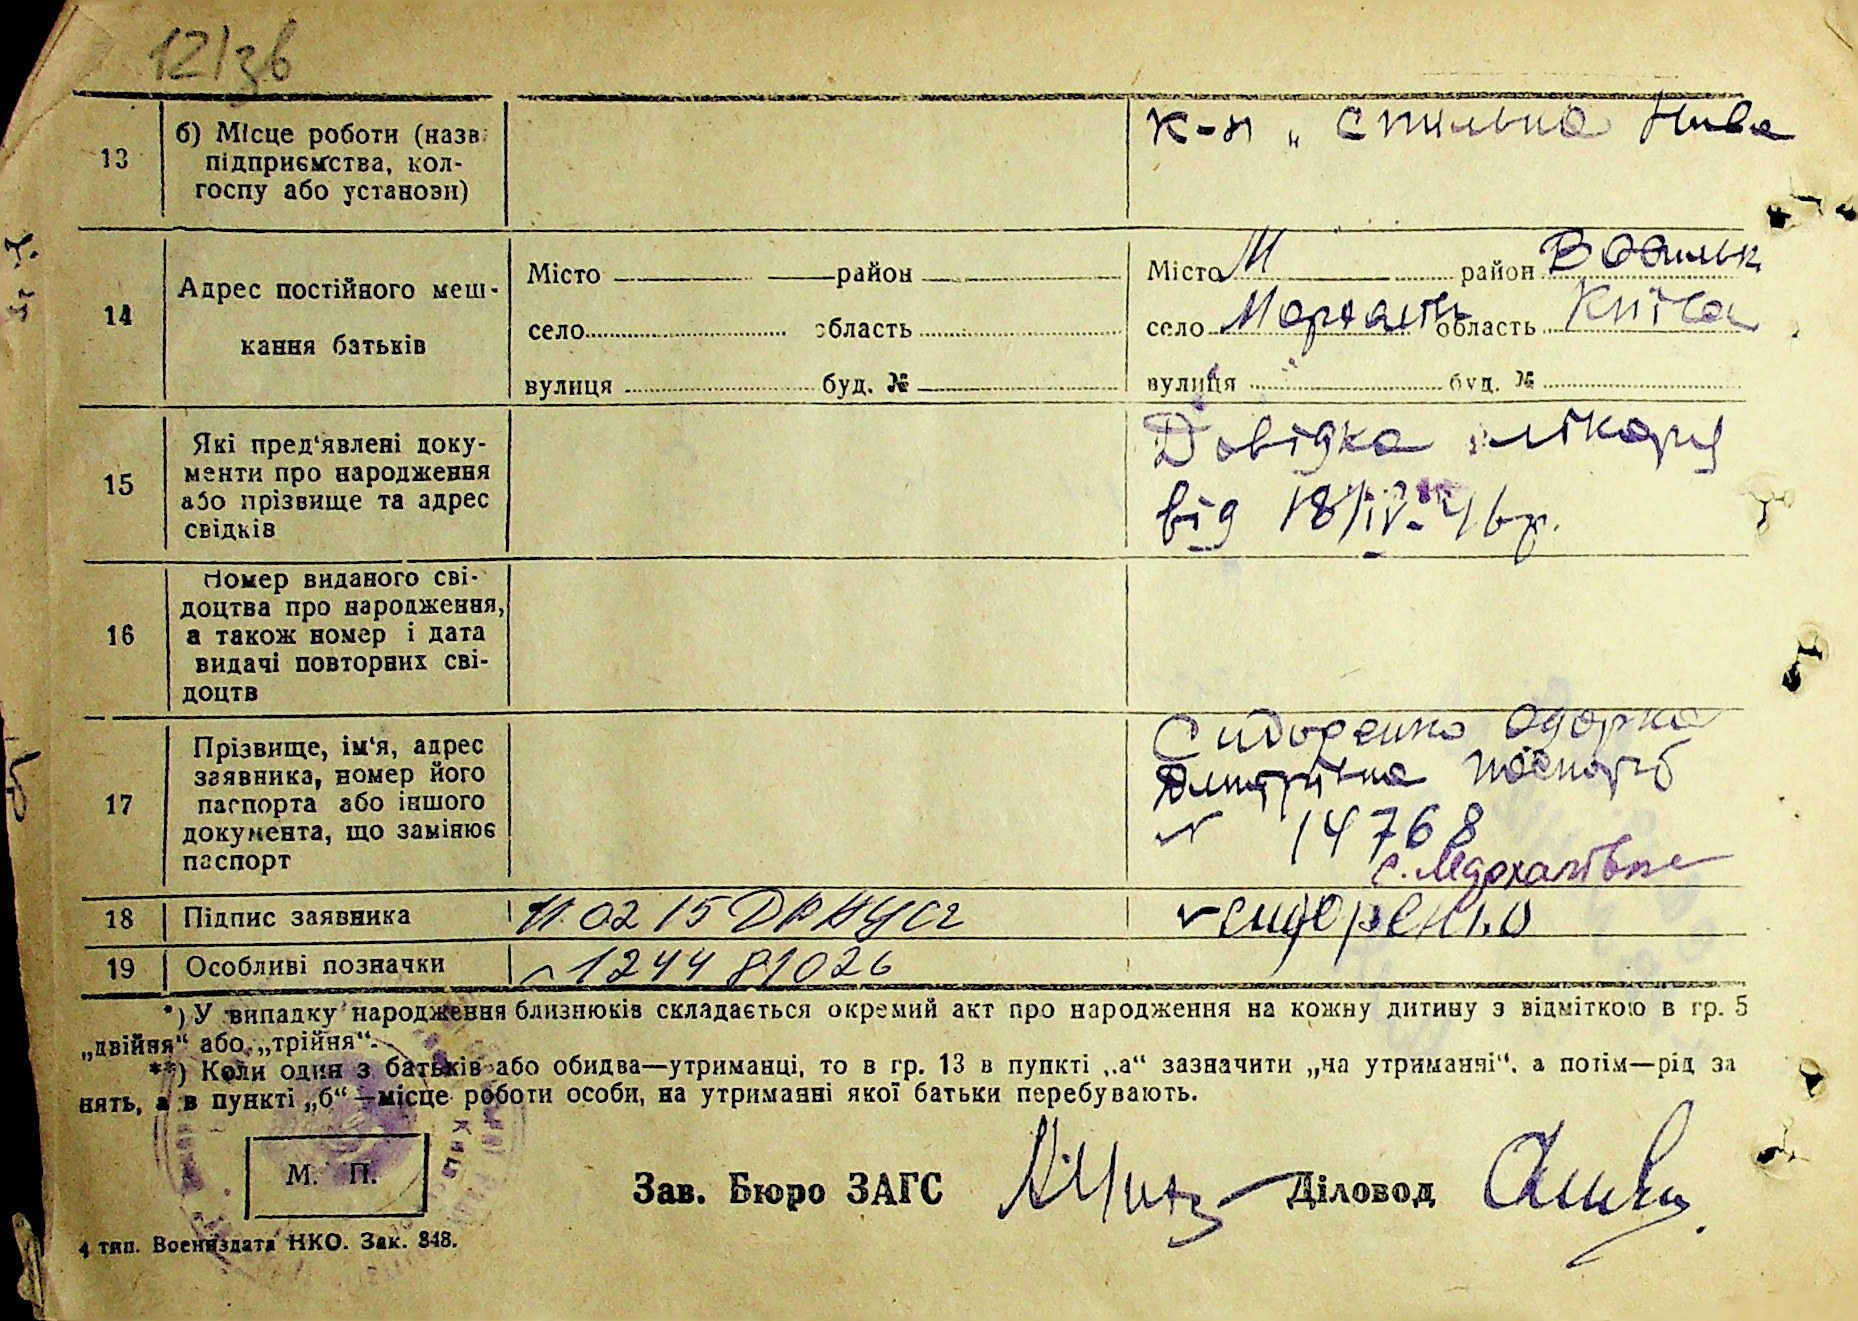 12/зв
13
б) Місце роботи (назв
підприємства, кол-
госпу або установи)
к-п „Спильна Нива
14
Адрес постійного меш-
кання батьків
Місто район
село область
вулиця буд. №
Місто М район
село область Київа
вулиця буд. №
15
Які пред'явлені доку-
менти про народження
або прізвище та адрес
свідків
Довідка лікаря
від 18/IV-46р.
16
Номер виданого сві-
доцтва про народження,
а також номер і дата
видачі повторних сві-
доцтв
17
Прізвище, ім'я, адрес
заявника, номер його
паспорта або іншого
документа, що замінює
паспорт
Сидоренко Одарка
Дмитрівна паспорт
14768
с.
18
Підпис заявника
11.02 15
Сидоренко
19
Особливі позначки
1244 81026
*) У випадку народження близнюків складається окремий акт про народження на кожну дитину з відміткою в гр. 5
„двійня“ або „трійня“.
**) Коли один з батьків або обидва—утриманці, то в гр. 13 в пункті „а“ зазначити „на утриманні“, а потім—рід за
нять, а в пункті „б“—місце роботи особи, на утриманні якої батьки перебувають.
М. П.
Зав. Бюро ЗАГС Діловод
4 тип. Воениздата НКО. Зак. 848.